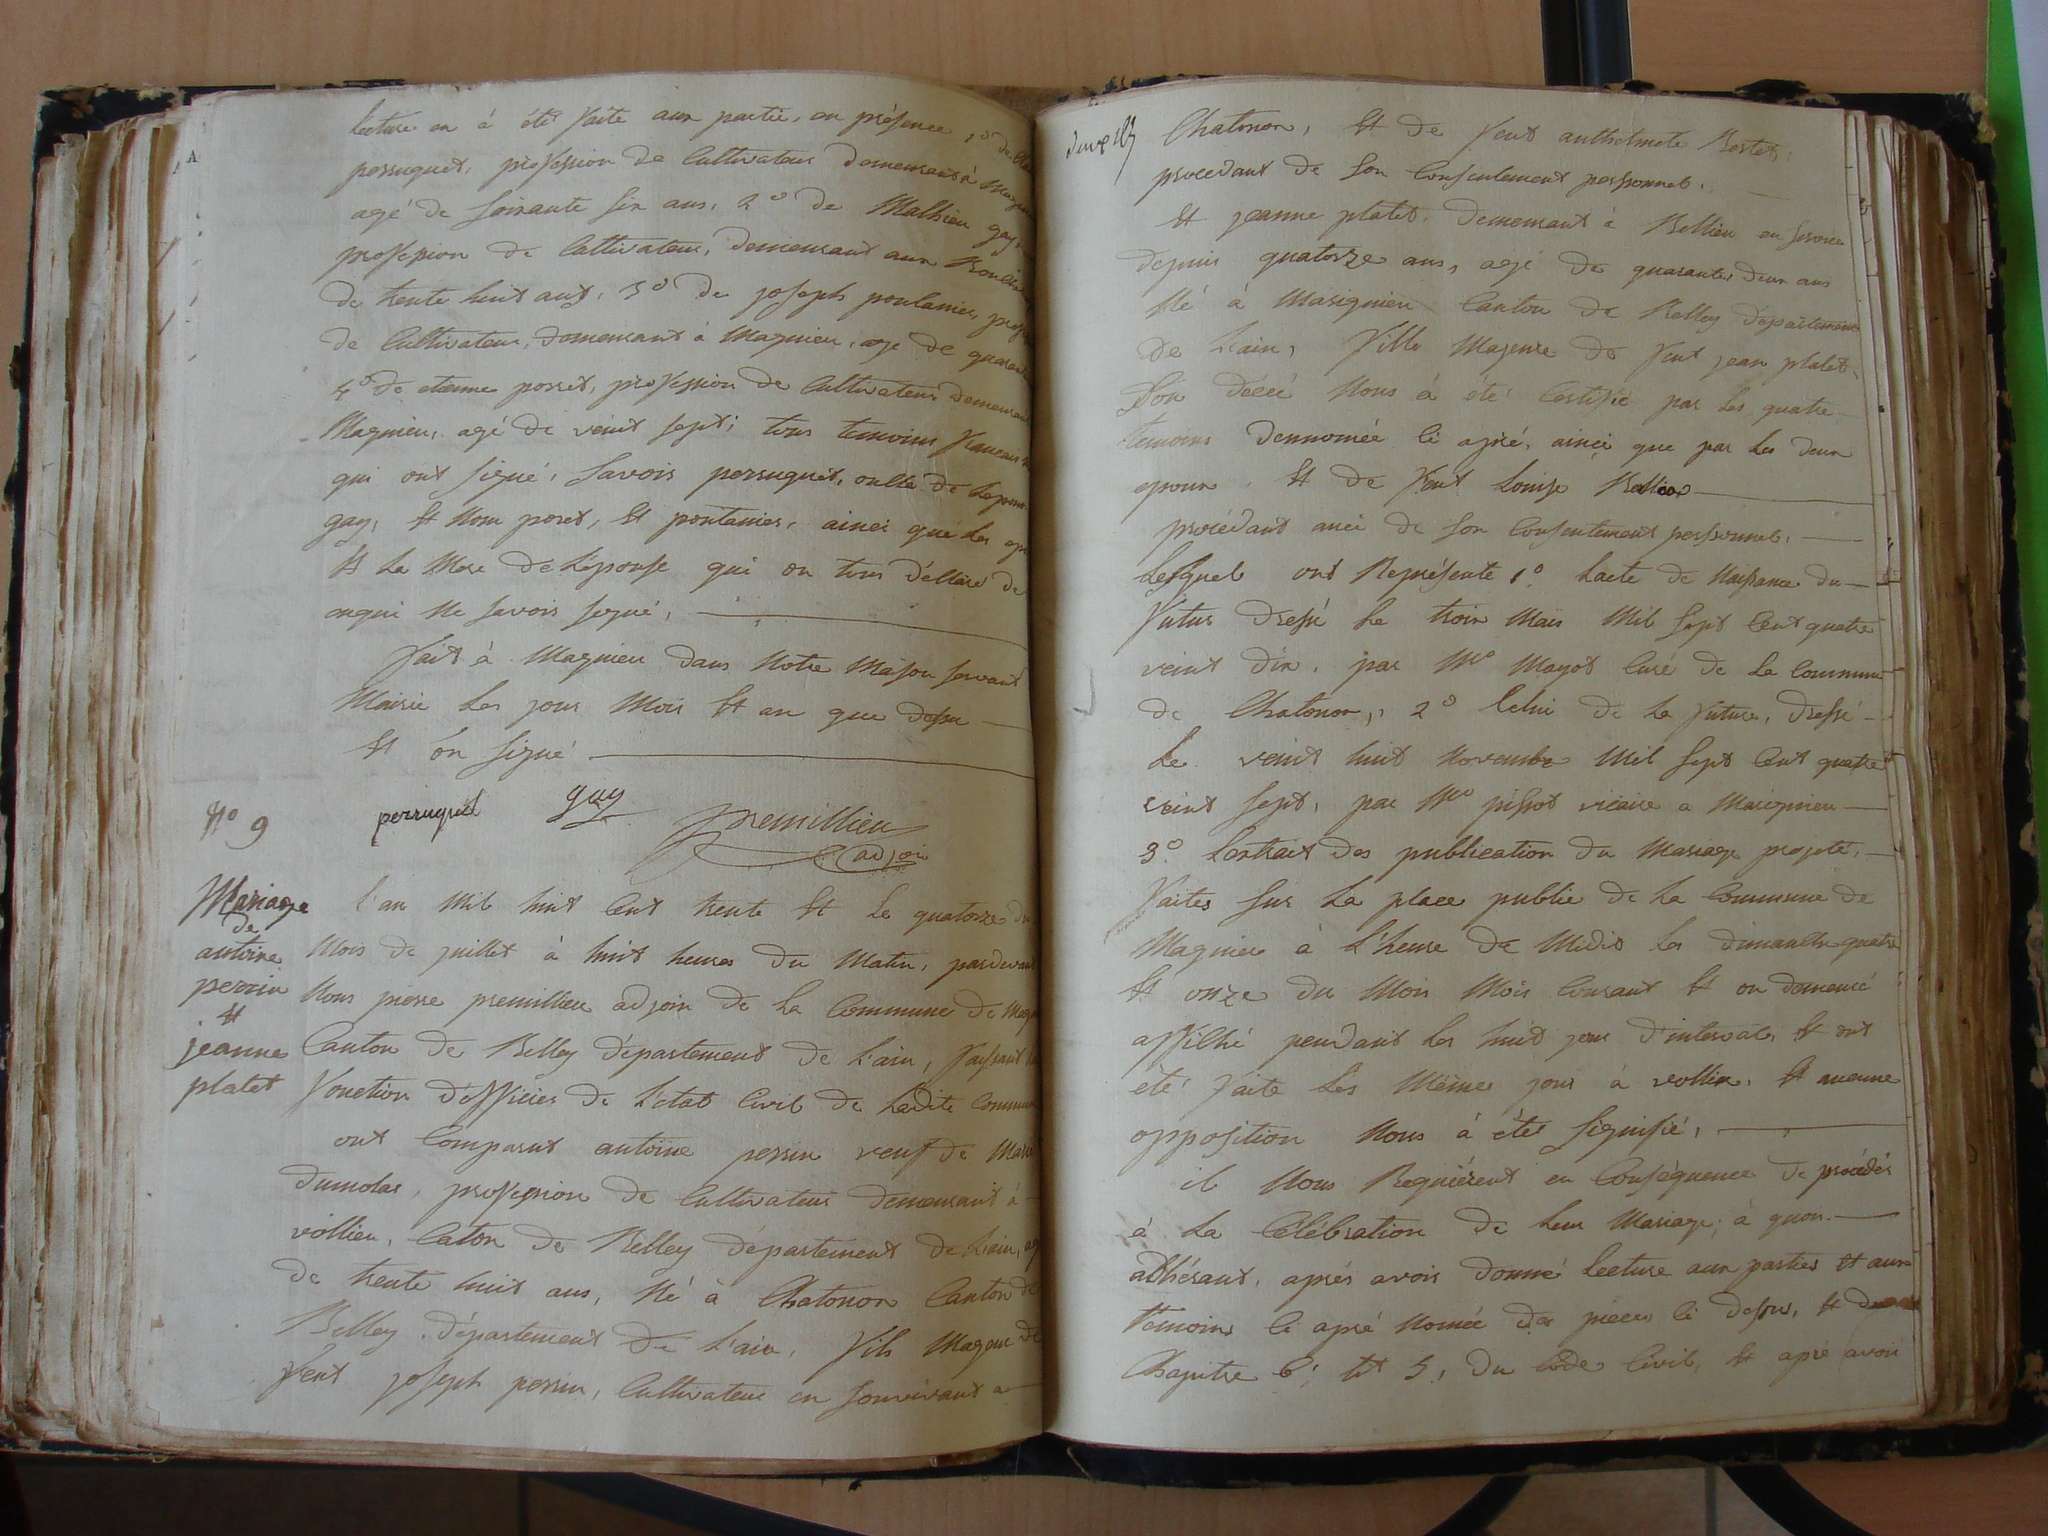 Lecture en à été faite aux partie, en présence 1º de
perruquet, profession de Cultivateur demeurant à
agé de soixante six ans, 2º de Mathieu gay
profession de Cultivateur, demeurant aux
de trente huit ans, 3º de joseph pontanier,
de Cultivateur, demeurant à Magnieu, age de
4º de etienne porret, profession de Cultivateur demeurant
Magnieu, agé de veint sept; tous temoins
qui ont signé, Savoir perruquet, oncle de Lepouse
gay, Et Non poret, Et pontanier, ainci que Les
Et La Mere de Lépouse qui on tous déclaré de
enqui Ne savoir signé,
fait à Magnieu dans Notre Maison servant
Mairie Les jour Mois Et an que dessu
Et on signé
perruquet gay premillieu
adjoin
Nº 9
Mariage
de
antoine
perrin
Et
jeanne
platet
L'an Mil huit Cent trente Et Le quatorze du
Mois de juillet à huit heures du Matin, pardevant
Nous pierre premillieu adjoin de La Commune de
Canton de Belley département de L'ain, faisant
fonction d'officier de L'etat Civil de Ladite Commune
ont Comparut antoine perrin veuf de
dumolar, profession de Cultivateur demeurant à
vollien, Caton de Belley département de L'ain,
de trente huit ans, Né à Chatonon Canton de
Belley département de L'ain, fils Mageur de
feut joseph perrin, Cultivateur en sonvivant a
Chatonon, Et de feut anthelmete
procedant de son Consentement personnel.
Et jeanne platet, demeurant à Bellieu en service
depuis quatorze ans, agé de quarante deux ans
Né à Marignieu Canton de Belley département
de L'ain, fille Majeure de feut jean platet
Son décé Nous à été Certifié par Les quatre
temoins dennomée Ci apré, ainci que par Les deux
epoux. Et de feut Louise
procédant anci de son Consentement personnel.
Lesquel ont Représente 1º Lacte de Naissance du
futur dressé Le trois Mars Mil sept Cent quatre
veint dix, par Mº Mayot Curé de La Commune
de Chatonon, 2º Celui de La future, dressé
Le veint huit Novembre Mil sept Cent quatre
veint sept, par Mº pissot vicaire a Marignieu
3º Lextrait des publication du Mariage projeté,
faites sur La place public de La Commune de
Magnieu à L'heure de Midis Les dimanche quatre
Et onze du Mois Mois Courant Et on demeuré
affiché pendant Les huit jour d'interval, Et ont
été faite Les Même jour à vollien, Et aucune
opposition Nous à été signifié,
il Nous Requièrent en Conséquence de procéder
à La Célébration de Leur Mariage, à quoi
adhérant, aprés avoir donné Lecture aux parties Et aux
témoins Ci apré Nomée des pieces Ci dessu, Et du
Chapitre 6, tit 5, du Code Civil, Et apré avoir